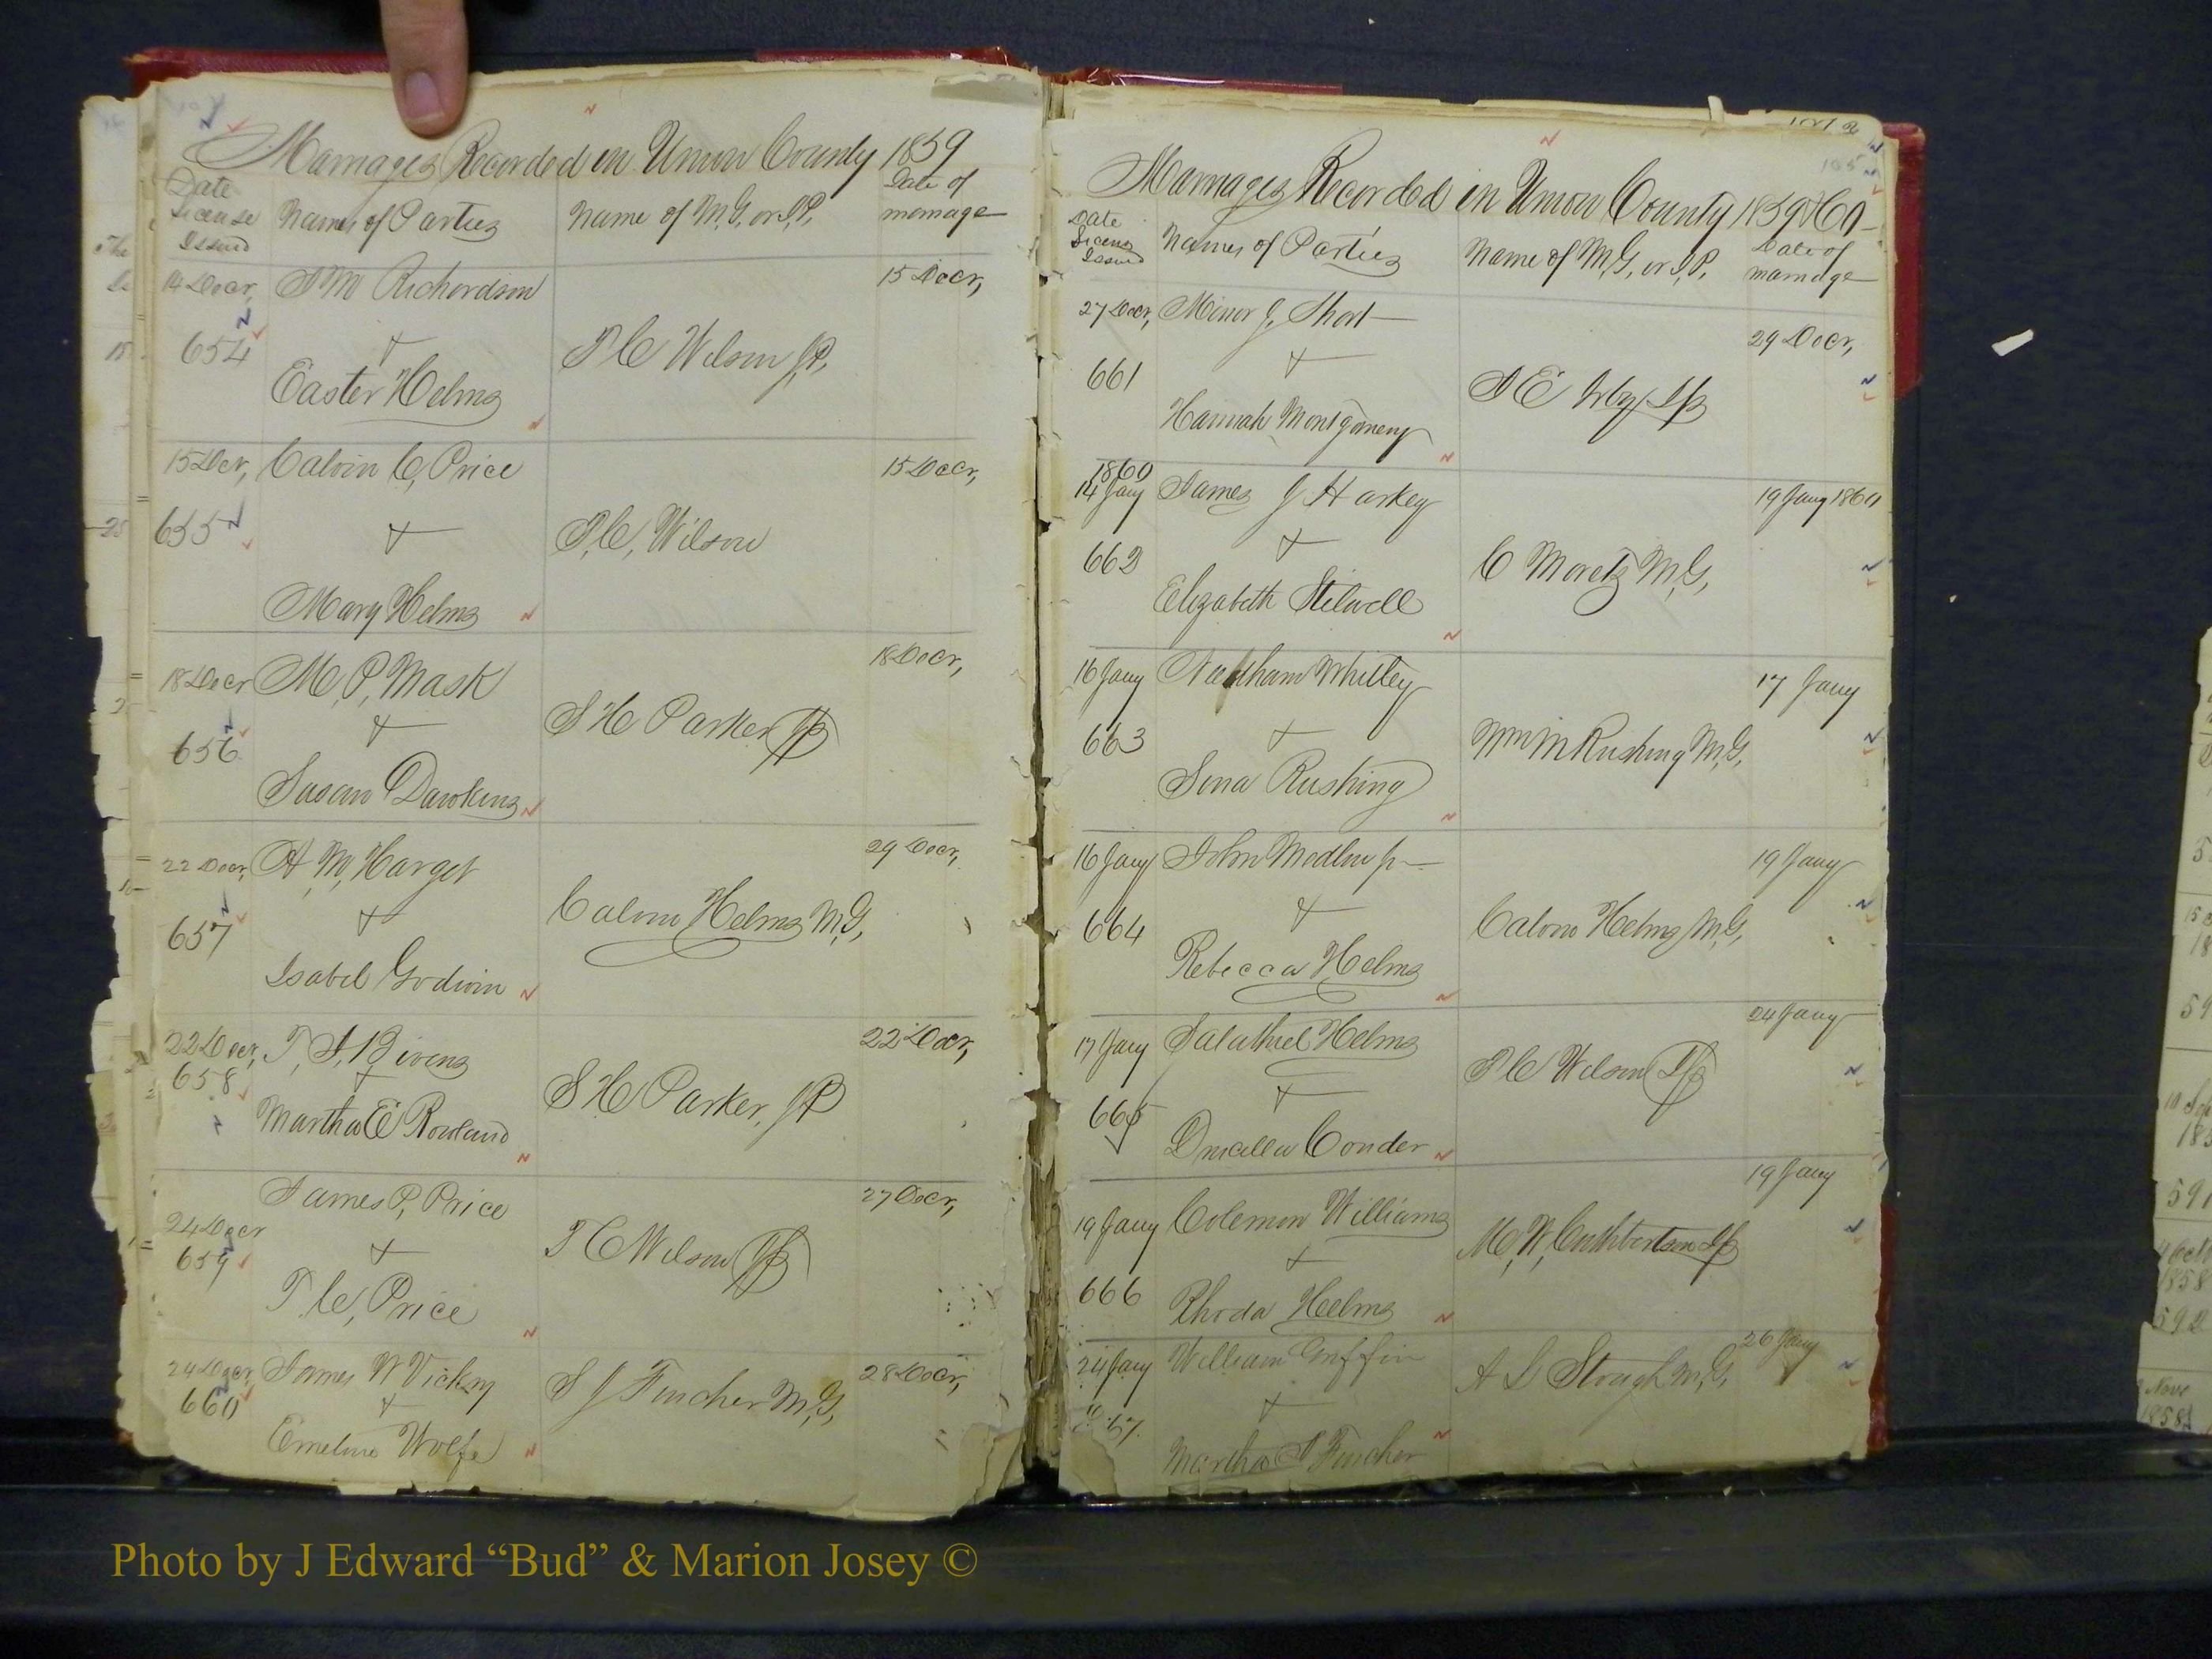 Marriages Recorded in Union County 1859
Date License Issued
Names of Parties
Name of M.G. or J.P.
Date of marriage
14 Decr, J M Richardson
15 Decr,
654
&
J C Wilson J.P.
Easter Helms
15 Decr, Calvin C, Price
15 Decr,
655
&
J, C, Wilson
Mary Helms
18 Decr M, P, Mask
18 Decr,
656
&
S H Parker JP
Susan Dawkins
22 Decr, A, M, Harget
29 Decr,
657
&
Calvin Helms M,G,
Isabel Godwin
22 Decr, T, J, Bivens
22 Decr,
658
&
S H Parker, JP
Martha E Rowland
James P, Price
27 Decr,
24 Decr
659
&
J C Wilson JP
T, C, Price
24 Decr, James W Vickry
28 Decr,
660
&
S J Fincher M,G,
Emeline Wolfe
Marriages Recorded in Union County 1859 & 60
Date License Issued
Names of Parties
Name of M,G, or J,P,
Date of marriage
27 Decr, Minor J, Short
29 Decr,
661
&
J E Irby JP
Hannah Montgomery
1860
14 Jany James J Harkey
19 Jany 1860
662
&
C Moretz M,G,
Elizabeth Stilwell
16 Jany Whitley
17 Jany
663
&
Wm M Rushing M,G,
Sena Rushing
16 Jany John Medlin jr
19 Jany
664
&
Calvin Helms M,G,
Rebecca Helms
17 Jany Salathiel Helms
24 Jany
665
&
J C Wilson JP
Drucilla Conder
19 Jany
19 Jany Colemon Williams
666
&
M, W, Cuthbertson JP
Rhoda Helms
24 Jany William Griffin
26 Jany
&
A L Stough M,G,
Martha J Fincher
Photo by J Edward “Bud” & Marion Josey ©